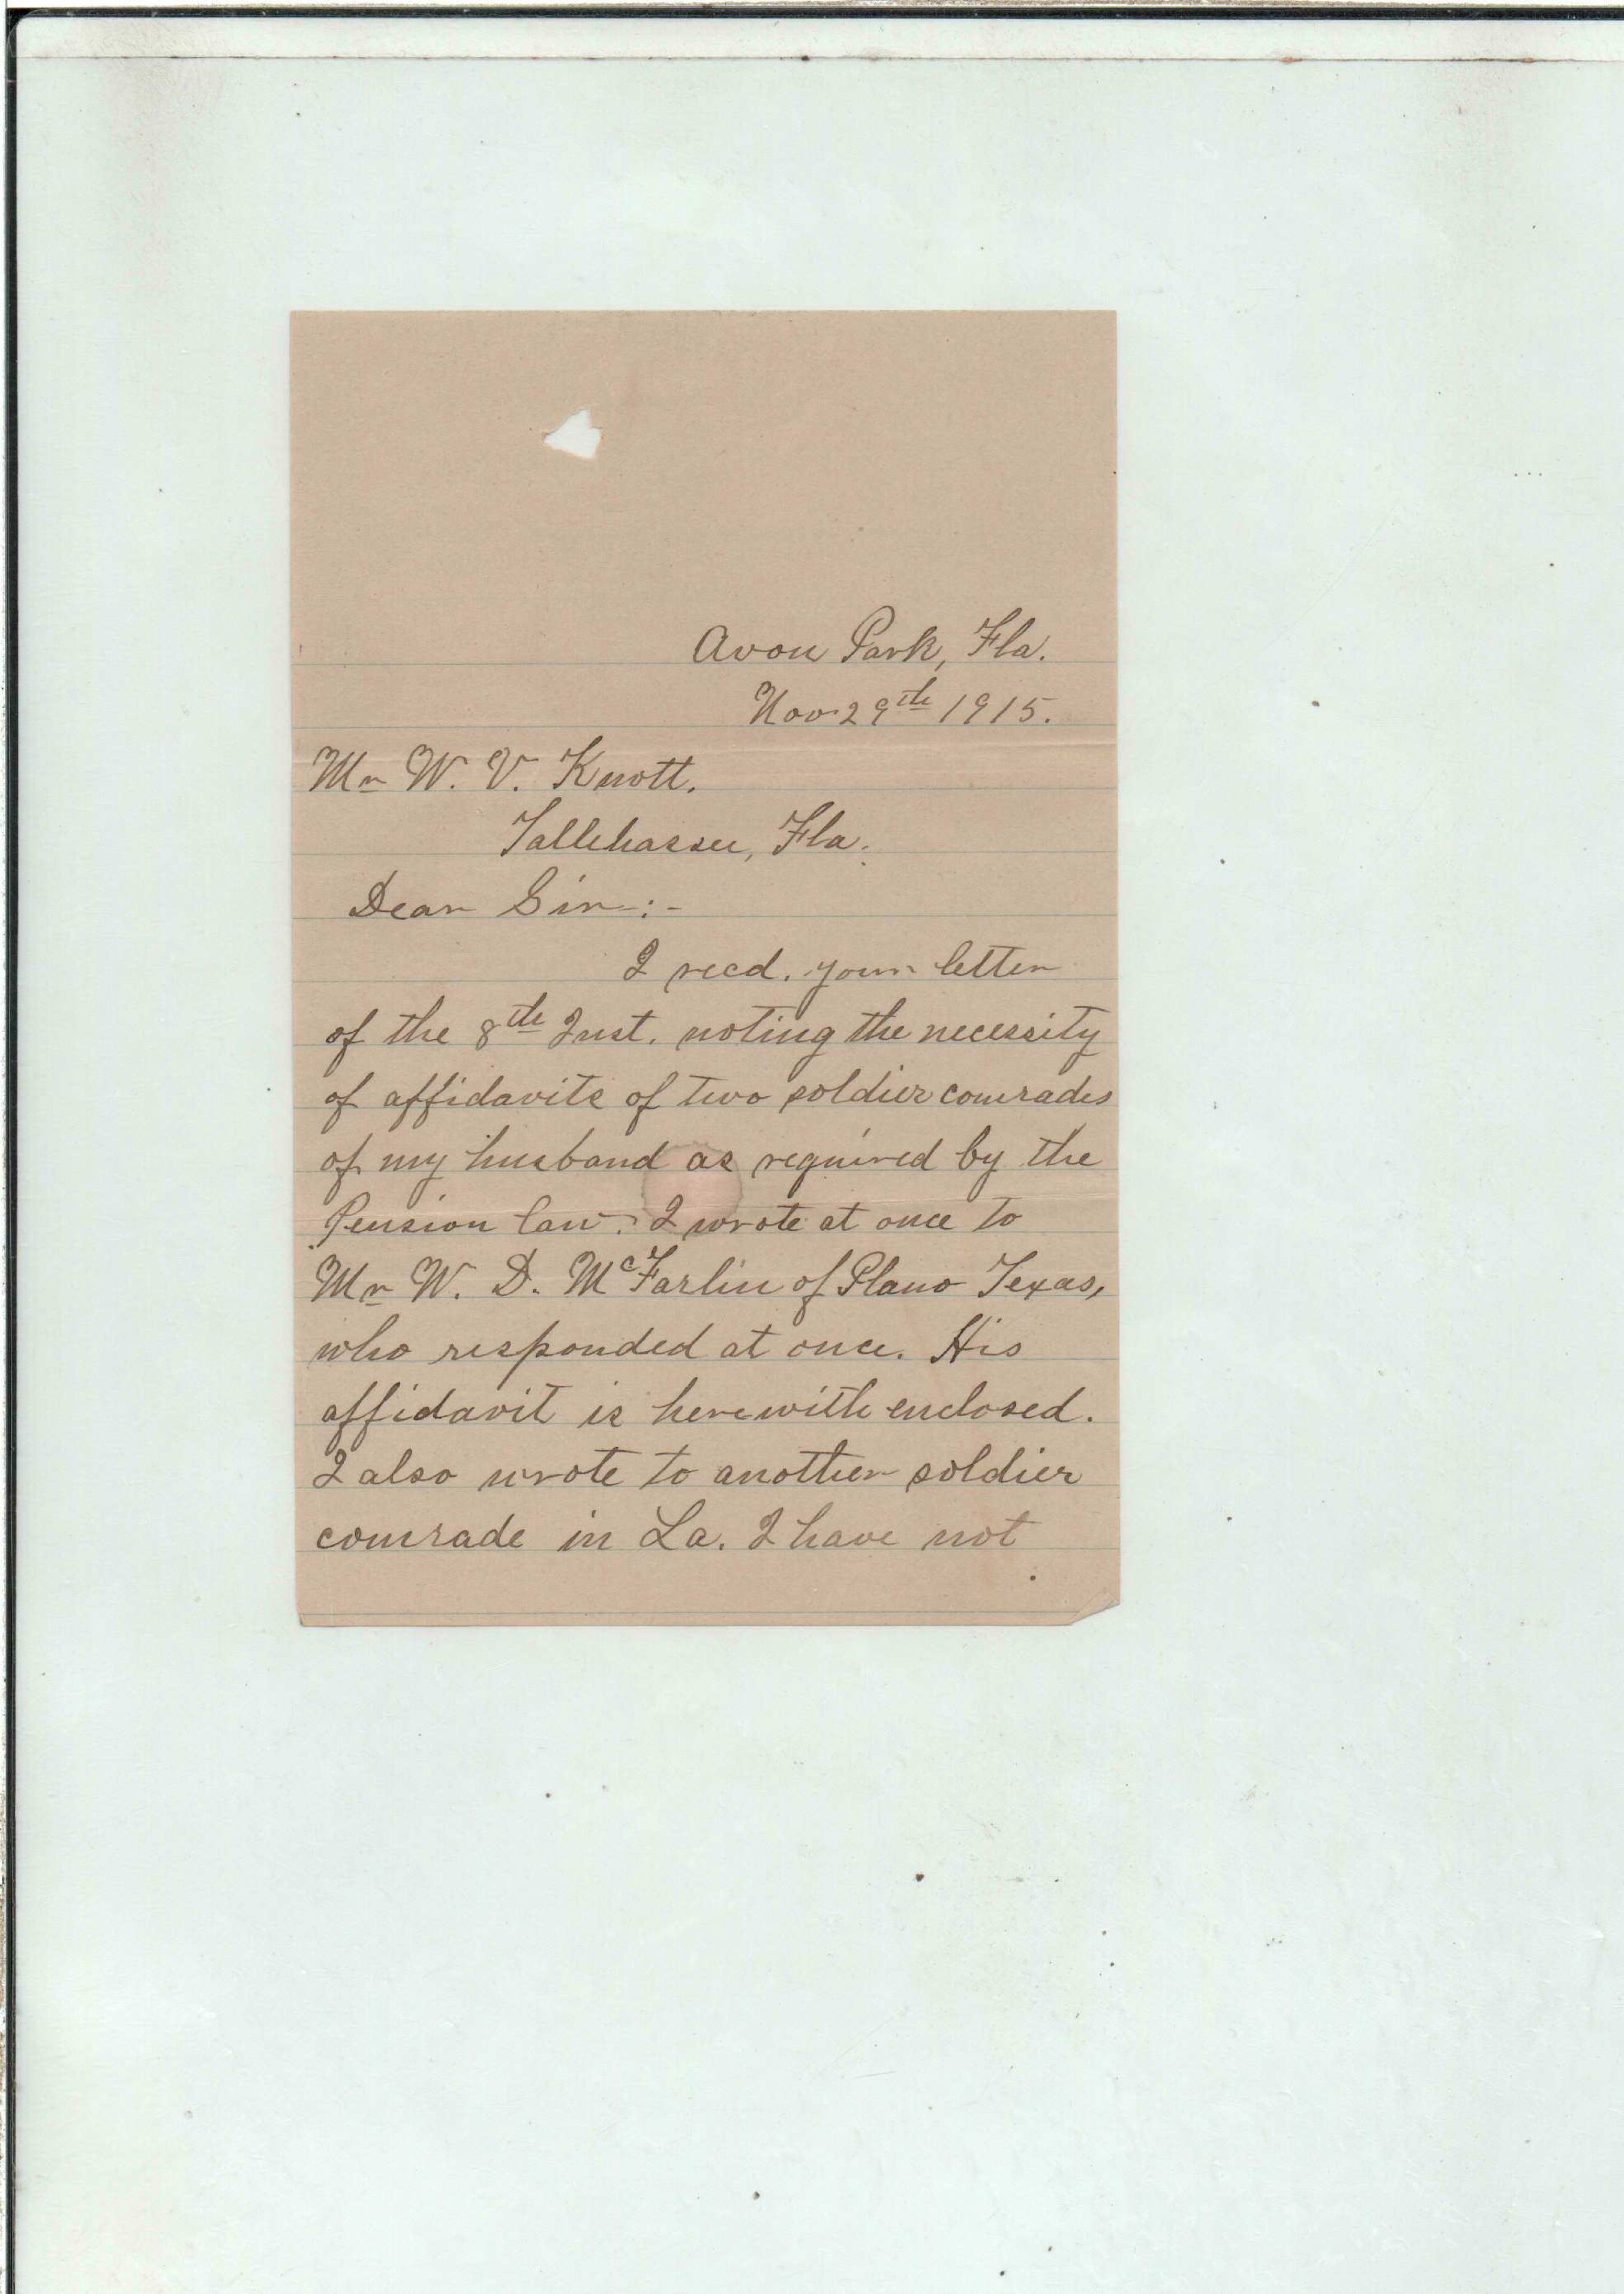 Avon Park, Fla.
Nov 29th 1915.
Mr W. V. Knott.
Tallehassee, Fla.
Dear Sir:-
I recd. your letter
of the 8th Inst. noting the necessity
of affidavits of two soldier comrades
of my husband as required by the
Pension law. I wrote at once to
Mr W. D. McFarlin of Plano Texas,
who responded at once. His
affidavit is herewith enclosed.
I also wrote to another soldier
comrade in La. I have not